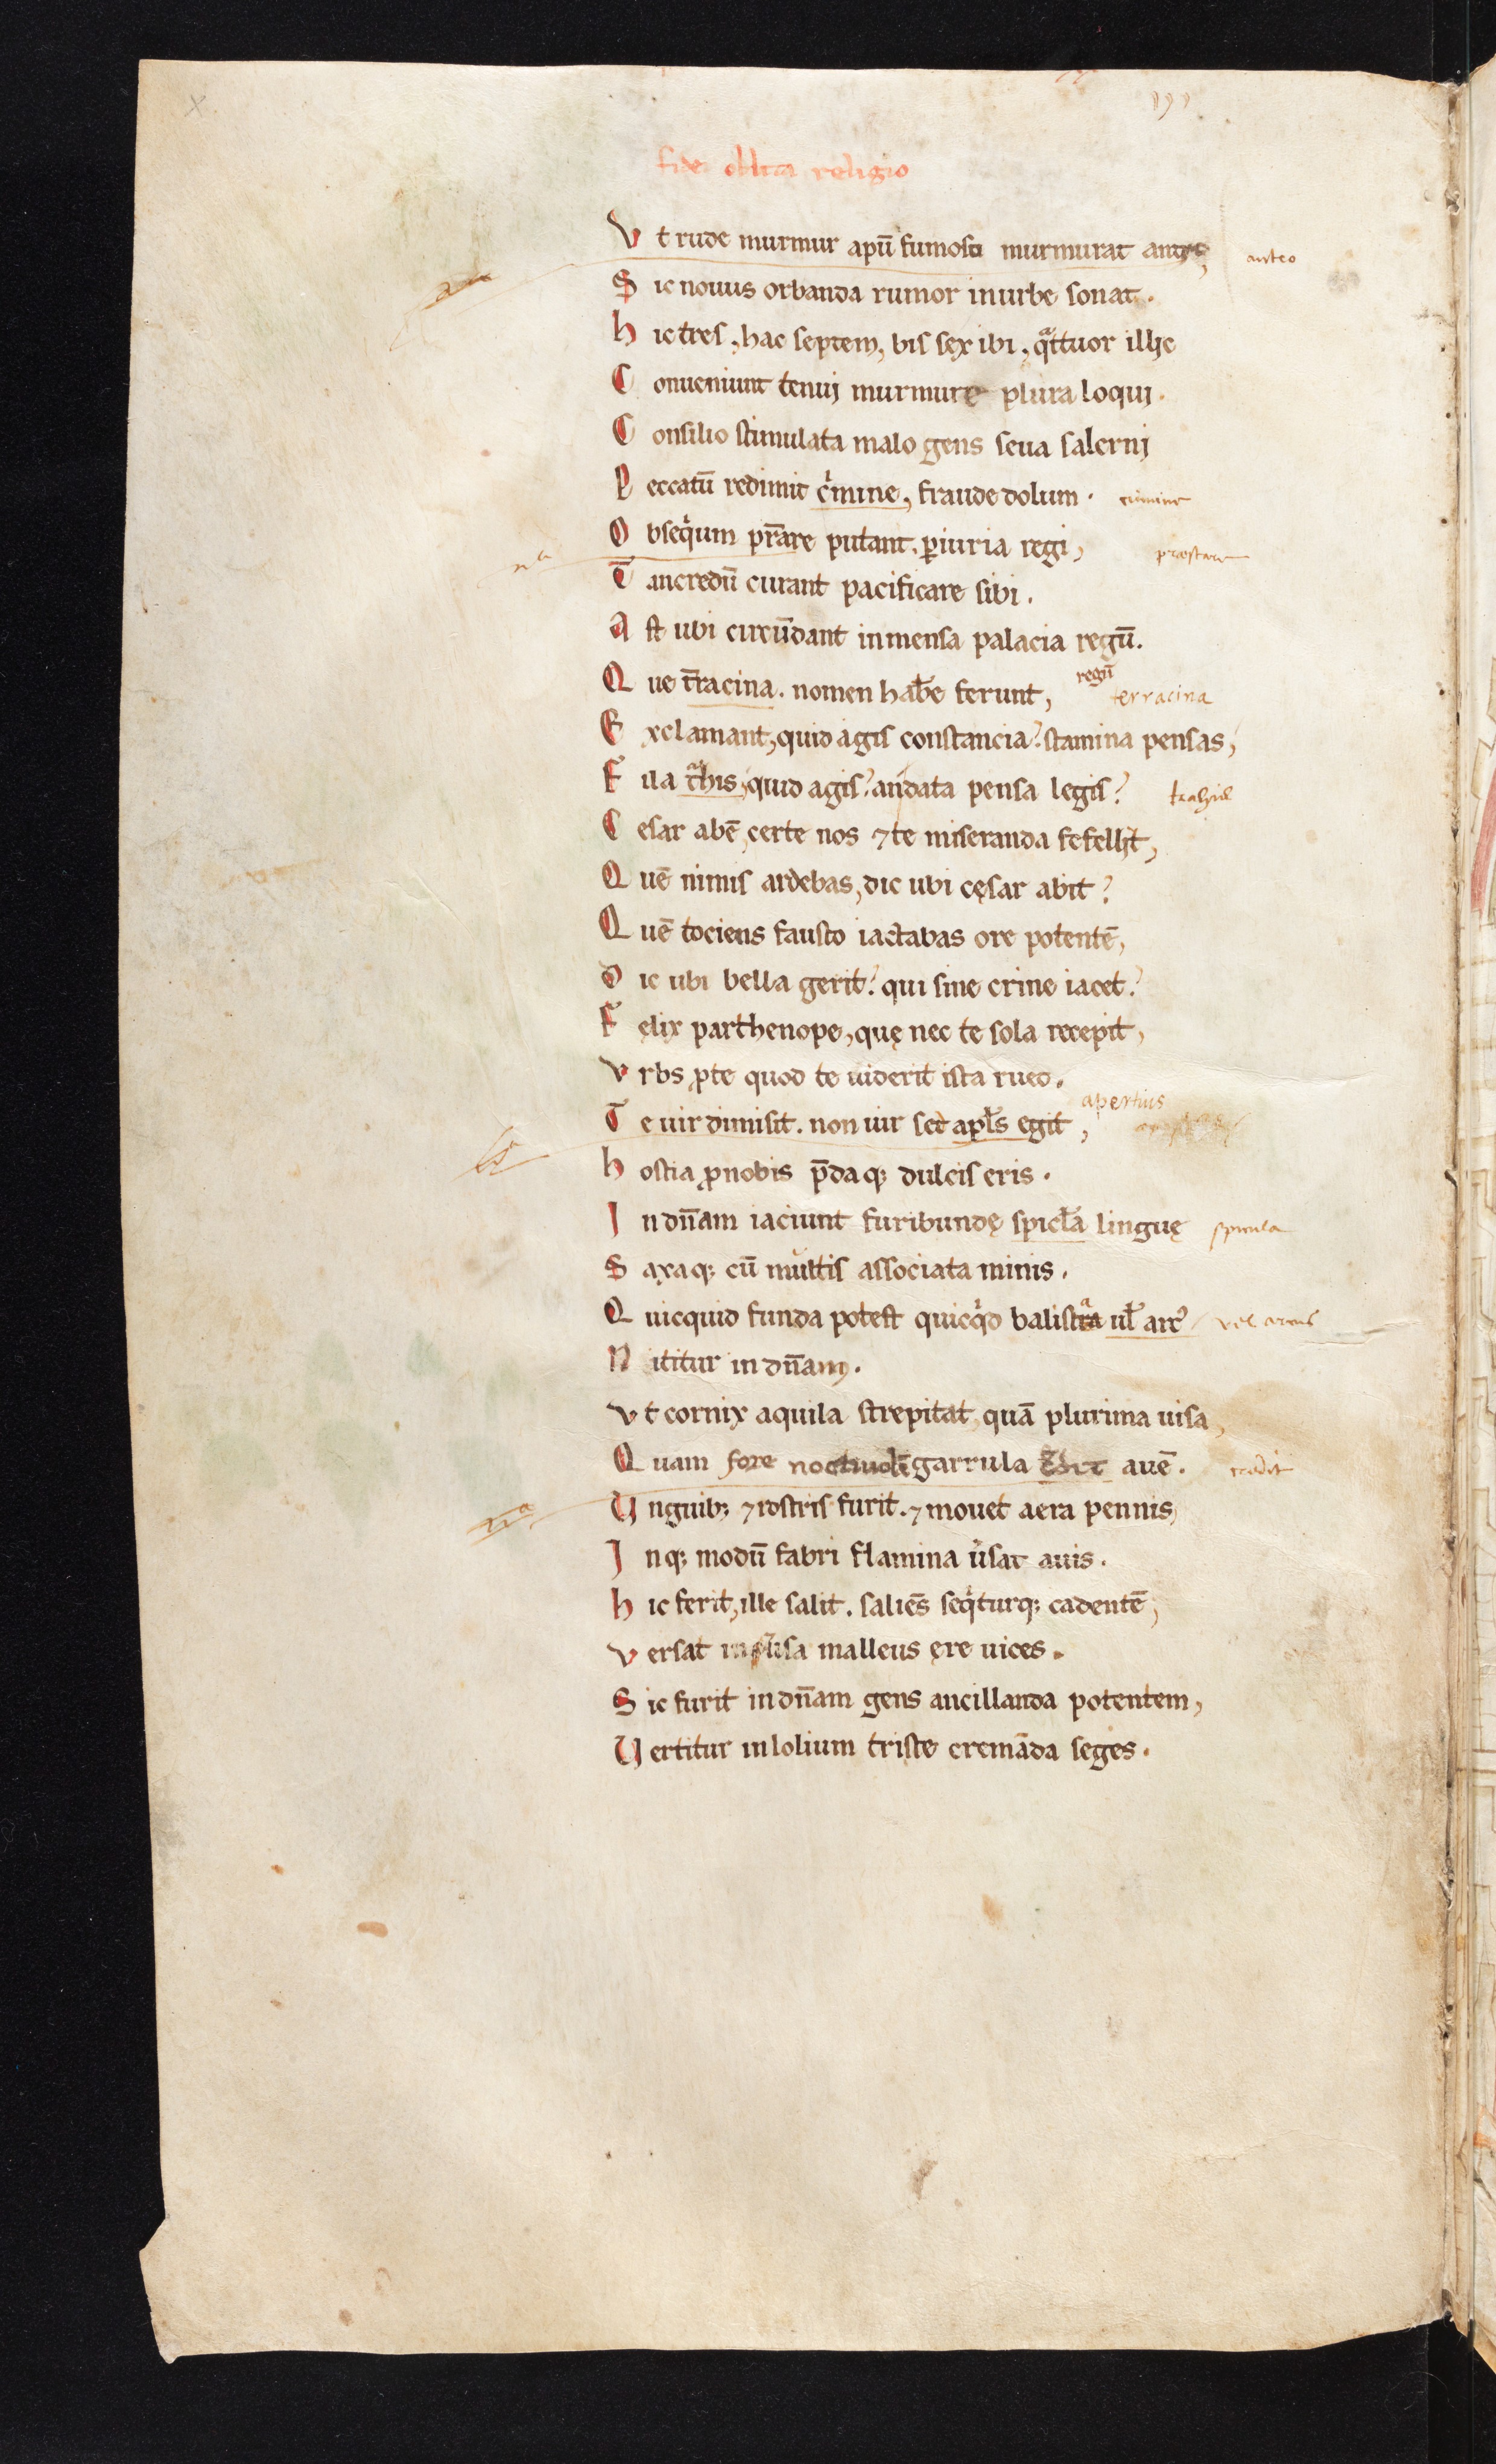 fidei oblita religio
Vt rude murmur apū fumosa murmurat antro, anteo
Sic nouus orbanda rumor inurbe sonat.
hic tres, hac septem, bis sex ibi, qͣttuor illic
Conueniunt tenui murmure plura loqui.
Consilio stimulata malo gens seua salerni
Peccatū redimit cͥmine, fraude dolum. crimine
Obseqͥum pr̄are putant, ꝑiuria regi, praestare
Tancredū curant pacificare sibi.
Ast ubi circūdant inmensa palacia regū.
Que t̄racina. nomen hab̄e ferunt, regū terracina
Exclamant, quid agis constancia? stamina pensas,
Fila tͣhis, quid agis? an data pensa legis? trahis
Cesar abē, certe nos ⁊ te miseranda fefellit,
Quē nimis ardebas, dic ubi cęsar abit?
Quē tociens fausto iactabas ore potentē,
dic ubi bella gerit? qui sine crine iacet?
Felix parthenope, quę nec te sola recepit,
Vrbs ꝓ te quod te uiderit ista rueo.
Te uir dimisit. non uir sed apl̄s egit, apertius
hostia ꝓ nobis p̄daqꝫ dulcis eris.
In dn̄am iaciunt furibundę spicl̄a linguę spicula
Saxaqꝫ cū multis associata minis.
Quicquid funda potest quicqͥd balistra ul̄ arcꝰ vel arcus
Nititur in dn̄am.
Vt cornix aquila strepitat quā plurima uisa,
Quam fore noctuolē garrula credit auē. credit
Unguibꝫ ⁊ rostris furit. ⁊ mouet aera pennis,
Inqꝫ modū fabri flamina ūsat auis.
hic ferit, ille salit. saliēs seqͥturqꝫ cadentē,
versat malleus ęre uices.
Sic furit in dn̄am gens ancillanda potentem,
Uertitur in lolium triste cremāda seges.